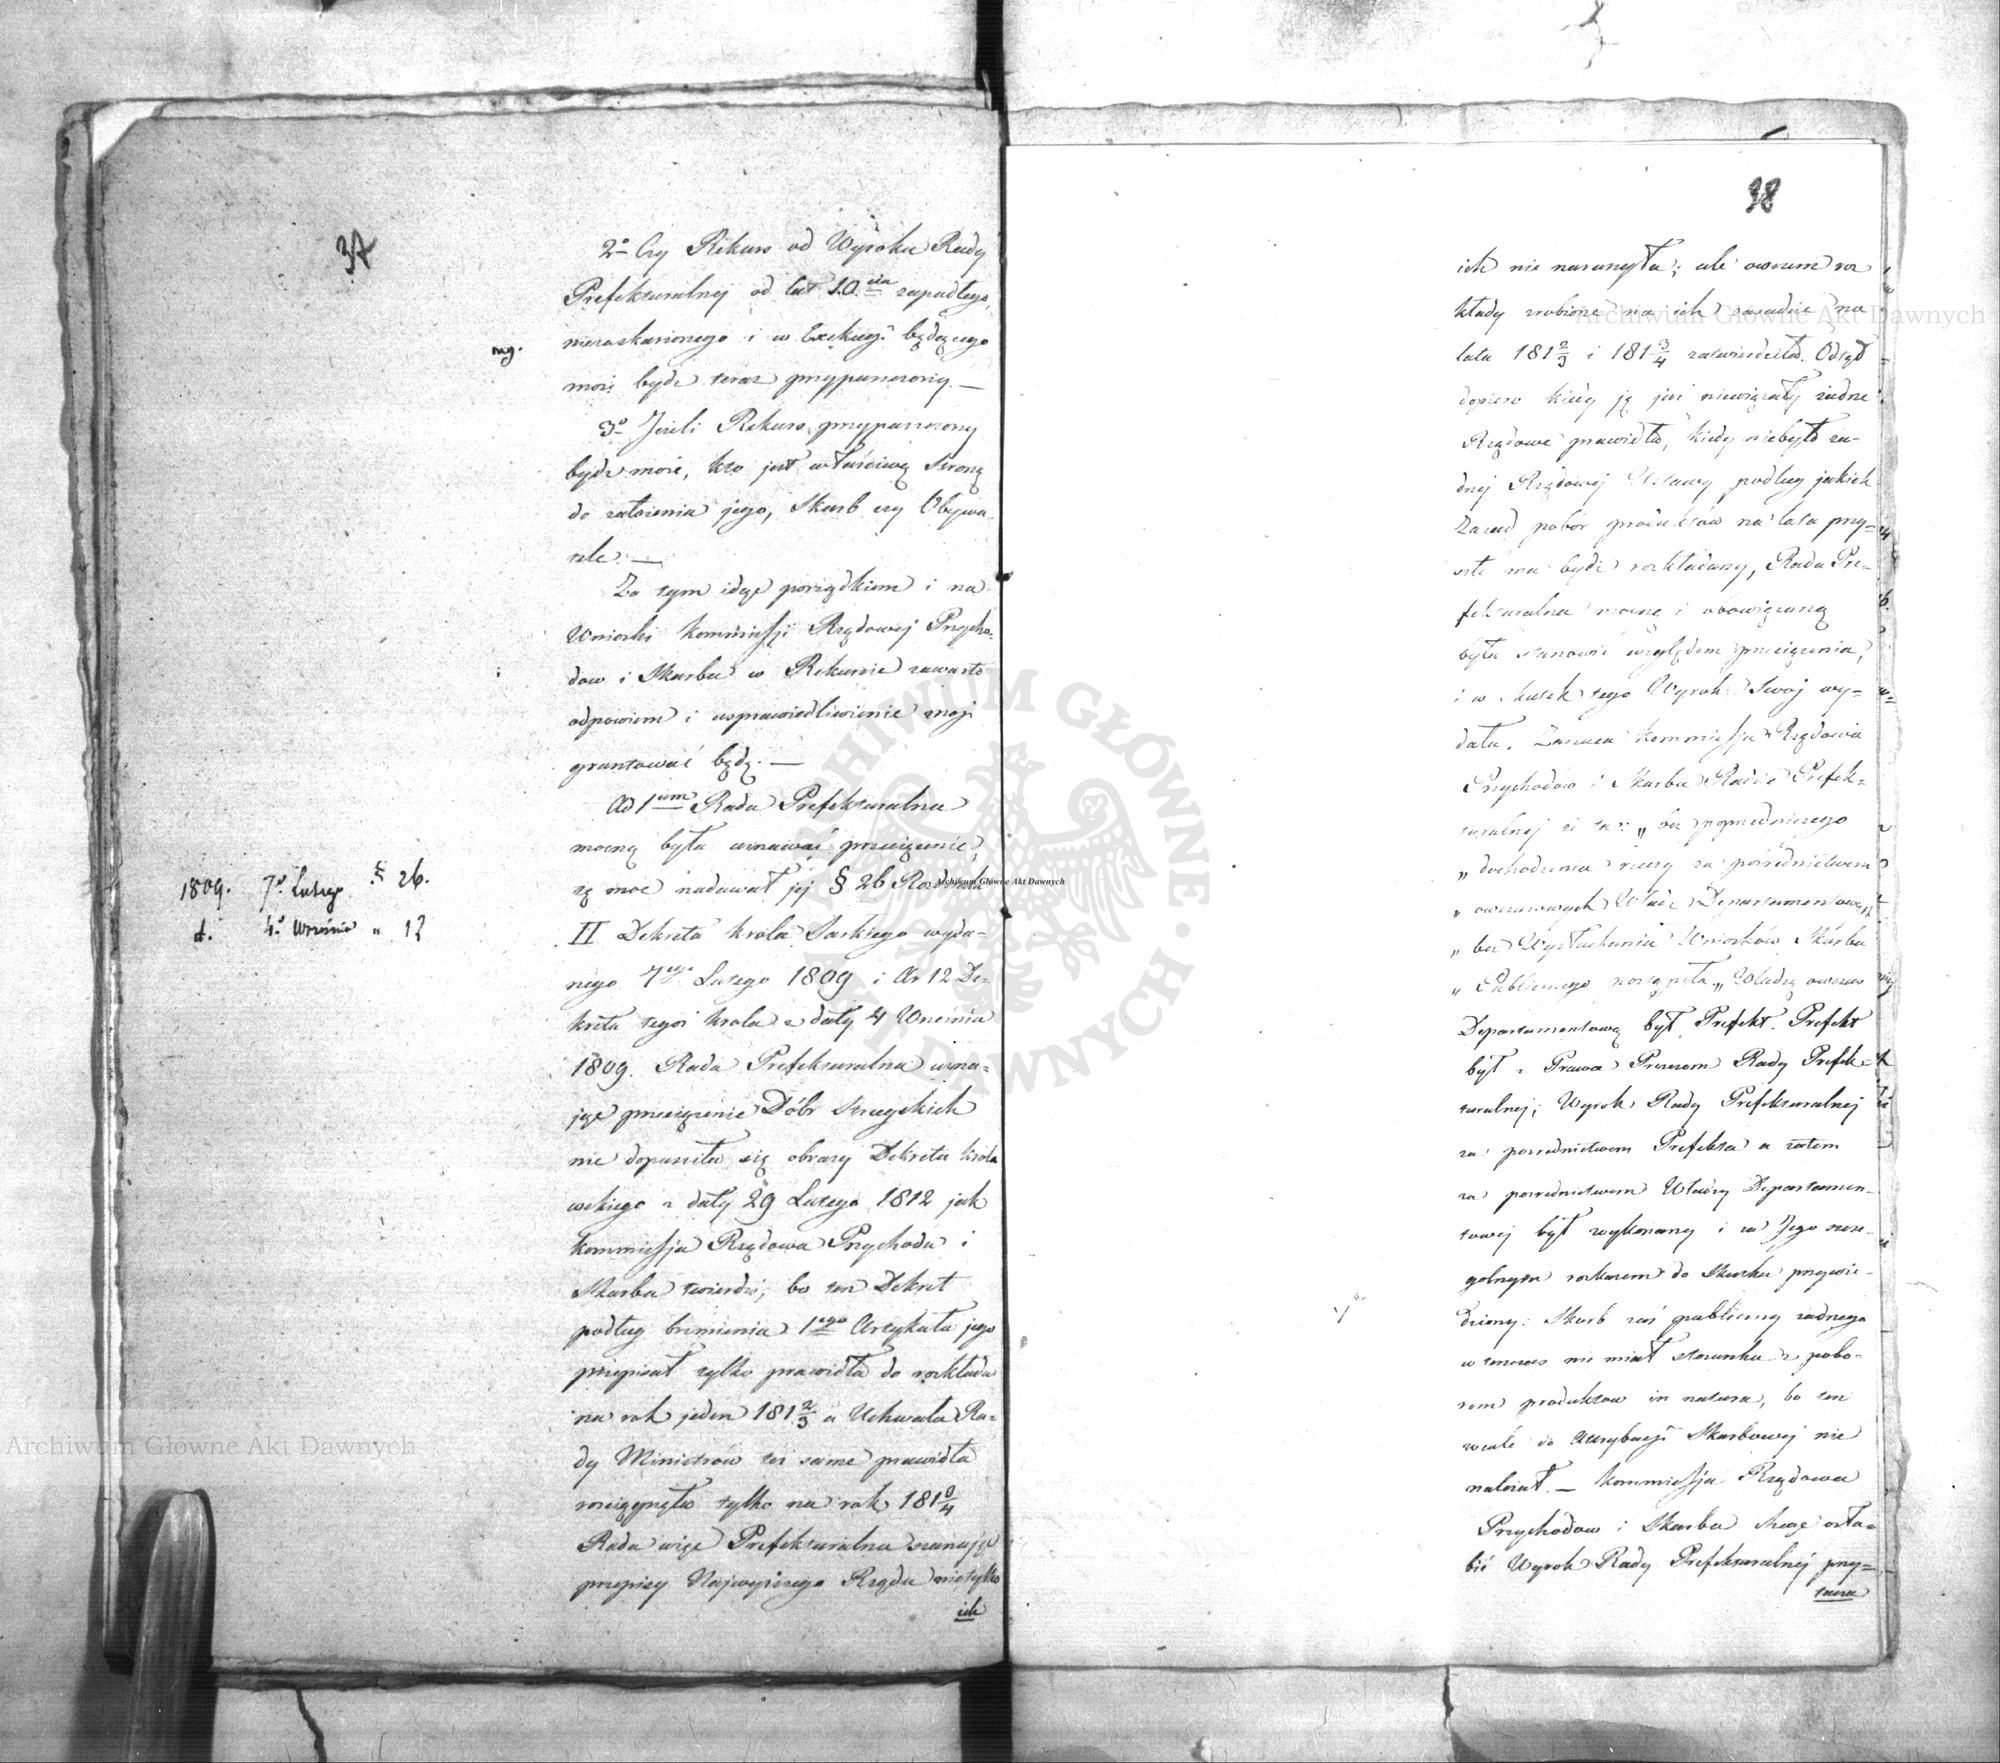 37
2º Czy Rekurs od Wyroku Rady
Prefekturalnej od lat 10.ciu zapadłego,
niezaskarżonego i w Exekucyi będącego
może bydź teraz przypuszczony. —
3º Jeżeli Rekurs przypuszczony
bydź może, kto jest właściwą stroną
do założenia jego, Skarb czy Obywa-
tele. —
Za tym idąc porządkiem i na
Wnioski Kommissji Rządowej Przycho-
dow i Skarbu w Rekursie zawarte
odpowiem i usprawiedliwienie moje
gruntować będę. —
Ad 1um Rada Prefekturalna
mocną była uznawać przeciążenie,
tę moc nadawał jej § 26 Rozdziału
II Dekretu Krola Saskiego wyda-
nego 7ego Lutego 1809 i Ar 12 De-
kretu tegoż Krola z daty 4 Września
1809. Rada Prefekturalna uzna-
jąc przeciążenie Dóbr
nie dopuściła się obrazy Dekretu Krole
wskiego z daty 29 Lutego 1812 jak
Kommissja Rządowa Przychodu i
Skarbu twierdzi, bo ten Dekret
podług brzmienia 1ego Artykułu jego
przepisał tylko prawidła do rozkładu
na rok jeden 181 2/3 a Uchwała Ra-
dy Ministrów też same prawidła
rozciągnęła tylko na rok 181 /4
Rada więc Prefekturalna szanując
przepisy Najwyższego Rządu nietylko
ich
mg.
1809. 7º Lutego § 26.
d. 4º Września " 12
38
ich nie naruszyła; ale owszem roz
kłady zrobione na ich zasadzie na
lata 181 2/3 i 181 3/4 zatwierdziła. Odtąd
dopiero kiedy ją już niewiązały żadne
Rządowe prawidła, kiedy niebyło ża-
dnej Rządowej Ustawy podług jakich
Zasad pobór produktów na lata przy-
szłe ma bydź rozkładany, Rada Pre-
fekturalna mocną i obowiązaną
była stanowić względem przeciążenia,
i w skutek tego Wyrok Swój wy-
dała. Zarzuca Kommissja Rządowa
Przychodów i Skarbu Radzie Prefek-
turalnej iż ta: „ bez poprzedniczego
„ dochodzenia rzeczy za pośrednictwem
„ owczasowych Władz Departamentowych
„ bez Wysłuchania Wniosków Skarbu
„ Publicznego postąpiła „ Władzą owczas
Departamentową był Prefekt. Prefekt
był z Prawa Prezesem Rady Prefek-
turalnej; Wyrok Rady Prefekturalnej
za pośrednictwem Prefekta a zatem
za pośrednictwem Władzy Departamen-
towej był wykonany i za Jego szcze-
gólnym rozkazem do Skutku przywie-
dziony: Skarb zaś publiczny żadnego
wtenczas nie miał stosunku z pobo-
rem produktow in natura, bo ten
wcale do Attrybucyi Skarbowej nie
należał. — Kommissja Rządowa
Przychodow i Skarbu chcąc osła-
bić Wyrok Rady Prefekturalnej przy-
tacza
Archiwum Główne Akt Dawnych
Archiwum Główne Akt Dawnych
Archiwum Główne Akt Dawnych
ARCHIWUM GŁÓWNE · AKT DAWNYCH ·